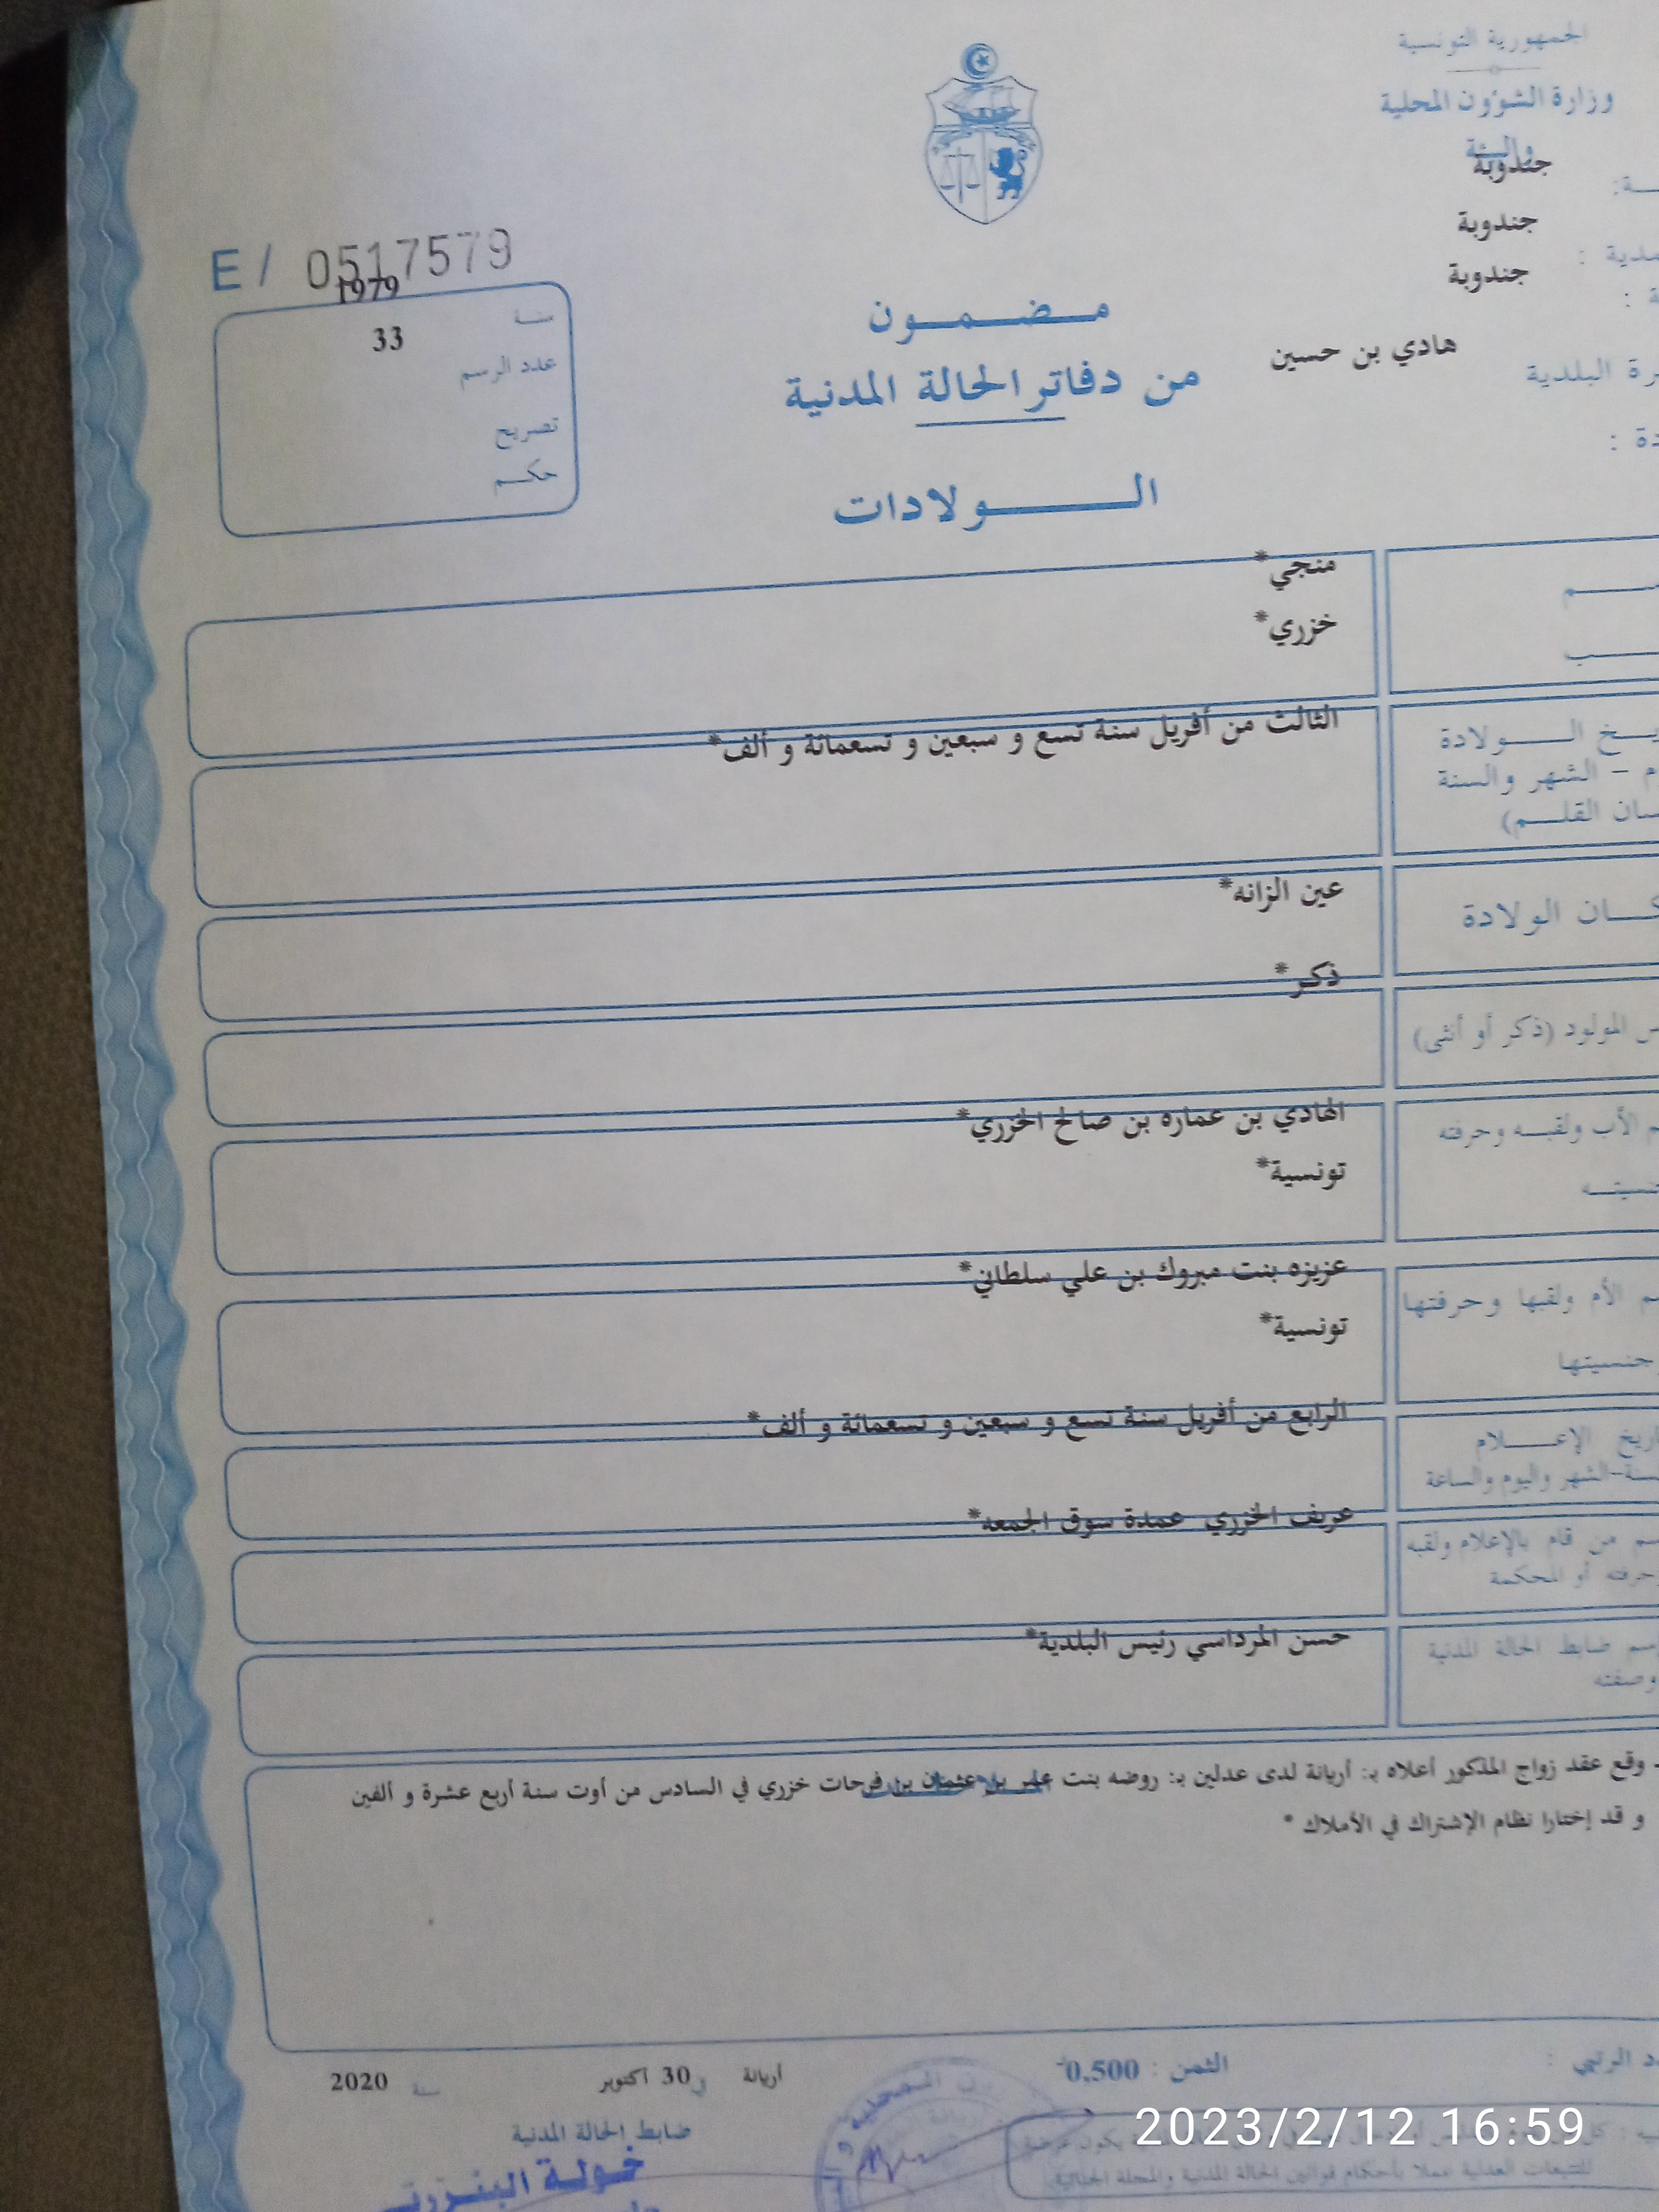 الجمهورية التونسية
وزارة الشؤون المحلية
والبيئة
جندوبة
جندوبة
جندوبة
هادي بن حسين
البلدية
E / 0517579
1979
سنة
33
عدد الرسم
تصريح
حكم
مضمون
من دفاتر الحالة المدنية
الولادات
منجي*
خزري*
الثالث من أفريل سنة تسع و سبعين و تسعمائة و ألف*
الولادة
– الشهر والسنة
القلم)
عين الزانه*
الولادة
ذكر*
المولود (ذكر أو أنثى)
الهادي بن عماره بن صالح الخزري*
الأب ولقبه وحرفته
تونسية*
عزيزه بنت مبروك بن علي سلطاني*
الأم ولقبها وحرفتها
تونسية*
جنسيتها
الرابع من أفريل سنة تسع و سبعين و تسعمائة و ألف*
الإعلام
الشهر واليوم والساعة
عريف الخزري عمدة سوق الجمعه*
من قام بالإعلام ولقبه
وحرفته أو المحكمة
حسن المرداسي رئيس البلدية*
ضابط الحالة المدنية
وصفته
- وقع عقد زواج المذكور أعلاه بـ: أريانة لدى عدلين بـ: روضه بنت عمر بن عثمان بن فرحات خزري في السادس من أوت سنة أربع عشرة و ألفين
و قد إختارا نظام الإشتراك في الأملاك *
الثمن : 0,500
أريانة في 30 أكتوبر سنة 2020
ضابط الحالة المدنية
خولة
2023/2/12 16:59
للتتبعات العدلية عملا بأحكام قوانين الحالة المدنية والمجلة الجنائية